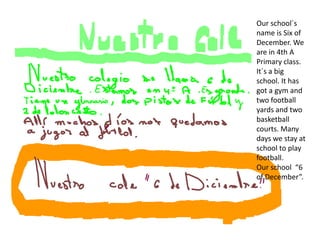 Nuestro Cole
Nuestro colegio se llama 6 de
Diciembre. Estamos en 4º A. España.
Tiene un gimnasio, dos pistas de Fútbol y
2 de baloncesto.
Allí muchos días nos quedamos
a jugar al fútbol.
Nuestro cole "6 de Diciembre".
Our school´s
name is Six of
December. We
are in 4th A
Primary class.
It´s a big
school. It has
got a gym and
two football
yards and two
basketball
courts. Many
days we stay at
school to play
football.
Our school "6
of December".